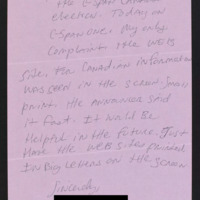 the C-Span Canadian
election. Today on
C-Span one. My only
complaint the web
site, the Canadian information
was seen in the screen small
print the announcer said
it fast. It would be
helpful in the future. Just
have the web sites provided
in big letters on the screen
Sincerely